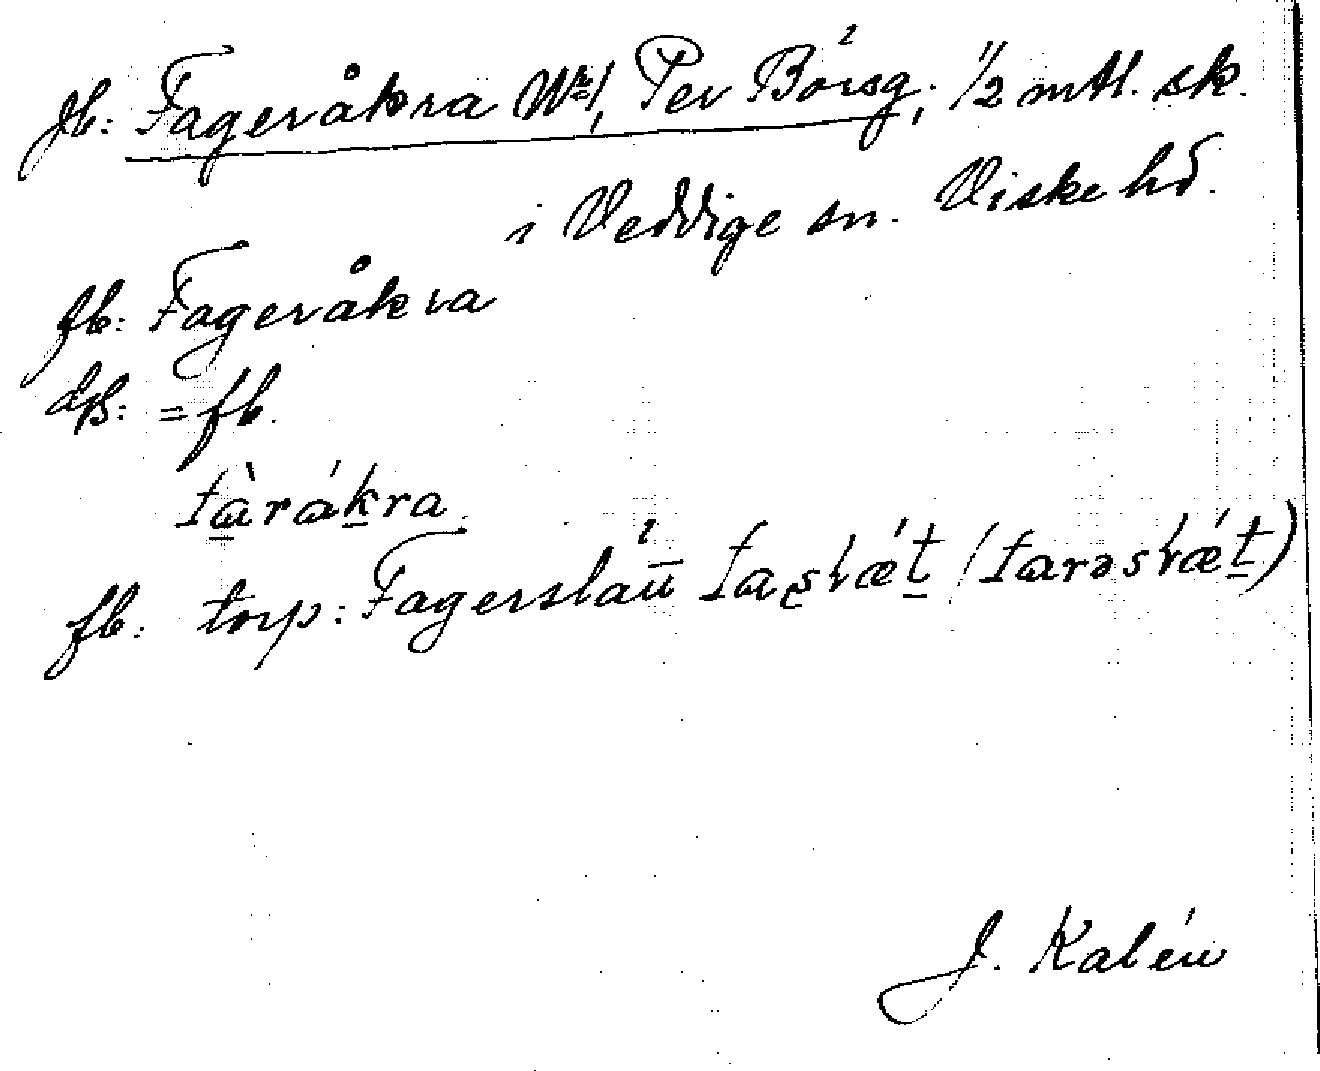 jb: Fageråkra No 1, Per Börsg, 1/2 mtl. sk.
i Veddige sn. Viske hd.
fb: Fageråkra
db: = fb.
fàrákra
fb. torp: Fagerslätt
J. Kalén